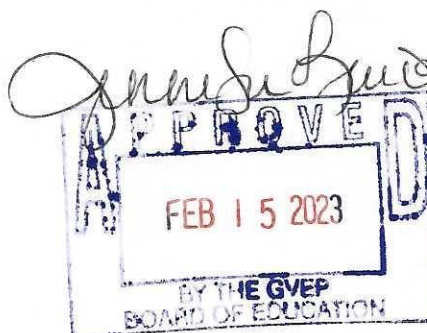 Jennifer
APPROVED
FEB 15 2023
BY THE GVEP
BOARD OF EDUCATION